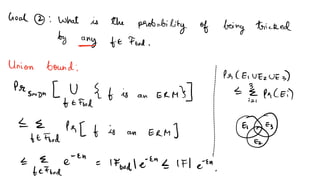 Goal ②: What is the probability of being tricked
by any f ∈ F_bad.
Union bound:
Pr_{S∼D^n} [ ∪_{f ∈ F_bad} { f is an ERM } ]
≤ Σ_{f ∈ F_bad} Pr [ f is an ERM ]
≤ Σ_{f ∈ F_bad} e^{-εn} = |F_bad| e^{-εn} ≤ |F| e^{-εn}.
Pr(E₁ ∪ E₂ ∪ E₃)
≤ Σ_{i=1}^{3} Pr(Eᵢ)
E₁ E₃
E₂